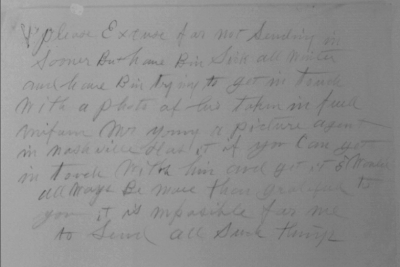 please Excuse for not Sending in
Sooner But have Bin Sick all winter
and have Bin trying to get in touch
with a photo of his taken in full
uniform Mr young a picture agent
in nashville has it if you can get
in touch with him and get it I Would
all ways Be more than grateful to
you it is mposible for me
to Send all Such things